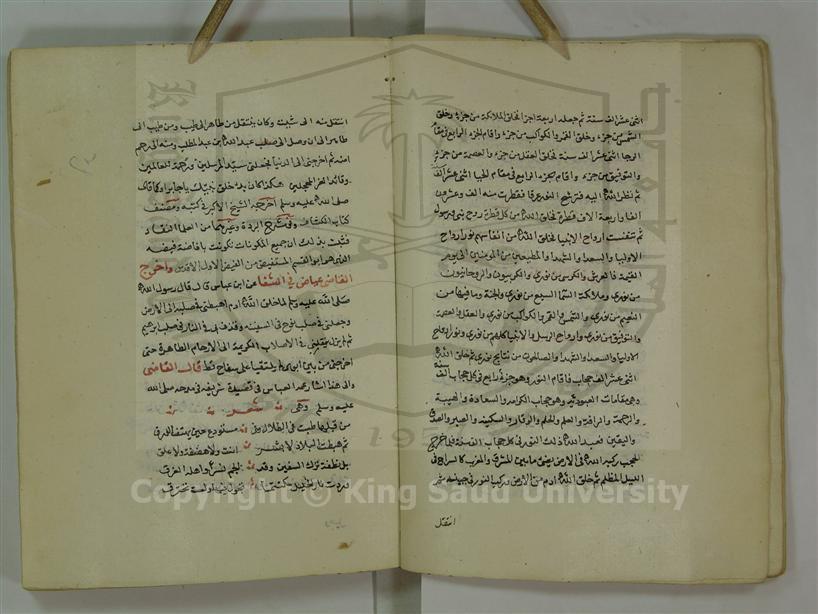 اثنى عشر الف سنة ثم جعله اربعة اجزا فخلق الملائكة من جزء وخلق
الشمس من جزء وخلق القمر والكواكب من جزء واقام الجزء الرابع في مقام
الرجا اثنى عشر الف سنة فخلق العقل من جزء والعصمة من جزء
والتوفيق من جزء واقام الجزء الرابع في مقام الحيا اثنى عشر الف
ثم نظر الله اليه فترشح النور عرقا فقطرت منه الف وعشرين
الفا واربعة الاف قطرة فخلق الله من كل قطرة روح نبي ورسول
ثم تنفست ارواح الانبيا فخلق الله من انفاسهم نور ارواح
الاوليا والسعدا والشهدا والمطيعين من المومنين الى يوم
القيمة فالعرش والكرسي من نوري والكروبيون والروحانيون
من نوري وملائكة السما السبع من نوري والجنة وما فيها من
النعيم من نوري والشمس والقمر والكواكب من نوري والعقل والعصمة
والتوفيق من نوري وارواح الرسل والانبيا كلهم من نوري
الاوليا والسعدا والشهدا والصالحون من نتايج نوري ثم خلق الله
اثنى عشر الف حجاب فاقام النور وهو جزء رابع في كل حجاب الف سنة
وهي مقامات العبودية وهو حجاب الكرامة والسعادة والهيبة
والرحمة والرافة والعلم والحلم والوقار والسكينة والصبر والصدق
واليقين فعبد الله ذلك النور في كل حجاب الف سنة فلما خرج
الحجب ركبه الله في الارض يضئ ما بين المشرق والمغرب كالسراج في
الليل المظلم ثم خلق الله ادم من الارض وركب النور في جبهته ثم
انتقل
انتقل منه الى شيث وكان ينتقل من طاهر الى طيب ومن طيب الى
طاهر الى ان وصل الى صلب عبد الله بن عبد المطلب ومنه الى رحم
امنة ثم اخرجني الى الدنيا فجعلني سيد المرسلين ورحمة للعالمين
وقائد الغر المحجلين هكذا كان بدء خلق نبيك يا جابر او كما قال
صلى الله عليه وسلم اخرجه الشيخ الاكبر في كتبه ومصنف
كتاب الكشاف وفي شرح البردة وغيرهما من العلما
فثبت بذلك ان جميع المكونات تكونت بافاضة فيضه
الذي هو ابو القسم المستفيض من الفيض الاول الاقدس واخرج
القاضي عياض في الشفا عن ابن عباس قال قال رسول الله
صلى الله عليه وسلم لما خلق الله ادم اهبطني في صلبه الى الارض
وجعلني في صلب نوح في السفينة وقذف بي في النار في صلب ابرهيم
ثم لم يزل ينقلني في الاصلاب الكريمة الى الارحام الطاهرة حتى
اخرجني من بين ابوي لم يلتقيا على سفاح قط قال القاضي
والى هذا اشار عمه العباس في قصيدة شريفة في مدحه صلى الله
عليه وسلم وهي شعر
من قبلها طبت في الظلال وفي مستودع حيث يخصف الورق
ثم هبطت البلاد لا بشر انت ولا مضغة ولا علق
بل نطفة تركب السفين وقد الجم نسرا واهله الغرق
وردت نار الخليل
Copyright © King Saud University